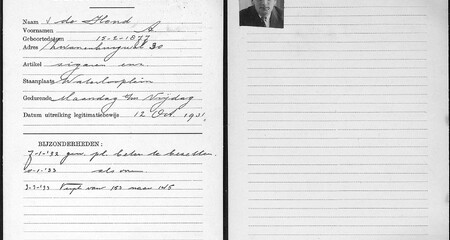 Naam v. de Hond
Voornamen A
Geboortedagen 15-2-1877
Adres Zwanenburgwal 30
Artikel sigaren enz.
Staanplaats Waterlooplein
Gedurende Maandag t/m Vrijdag
Datum uitreiking legitimatiebewijs 12 Oct. 1931.
BIJZONDERHEDEN:
7-1-'32 gew. pl. beter te bezetten.
-1-'33 als voren.
3-3-'33 Verpl van 153 naar 145